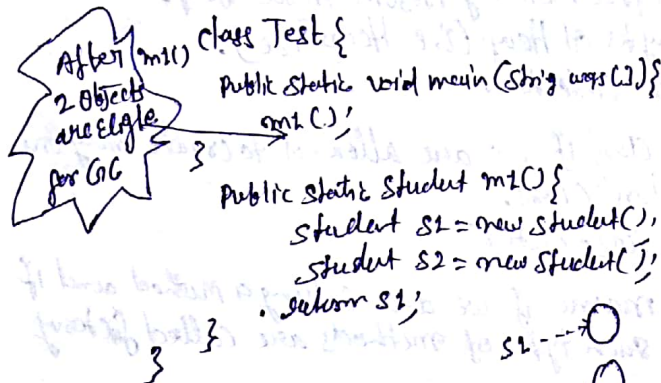 After m1()
2 Objects
are Eligble
for GC
class Test {
public static void main (String args []) {
m1 ();
}
public static Student m1() {
Student s1 = new Student();
Student s2 = new Student();
return s1;
}
}
s1